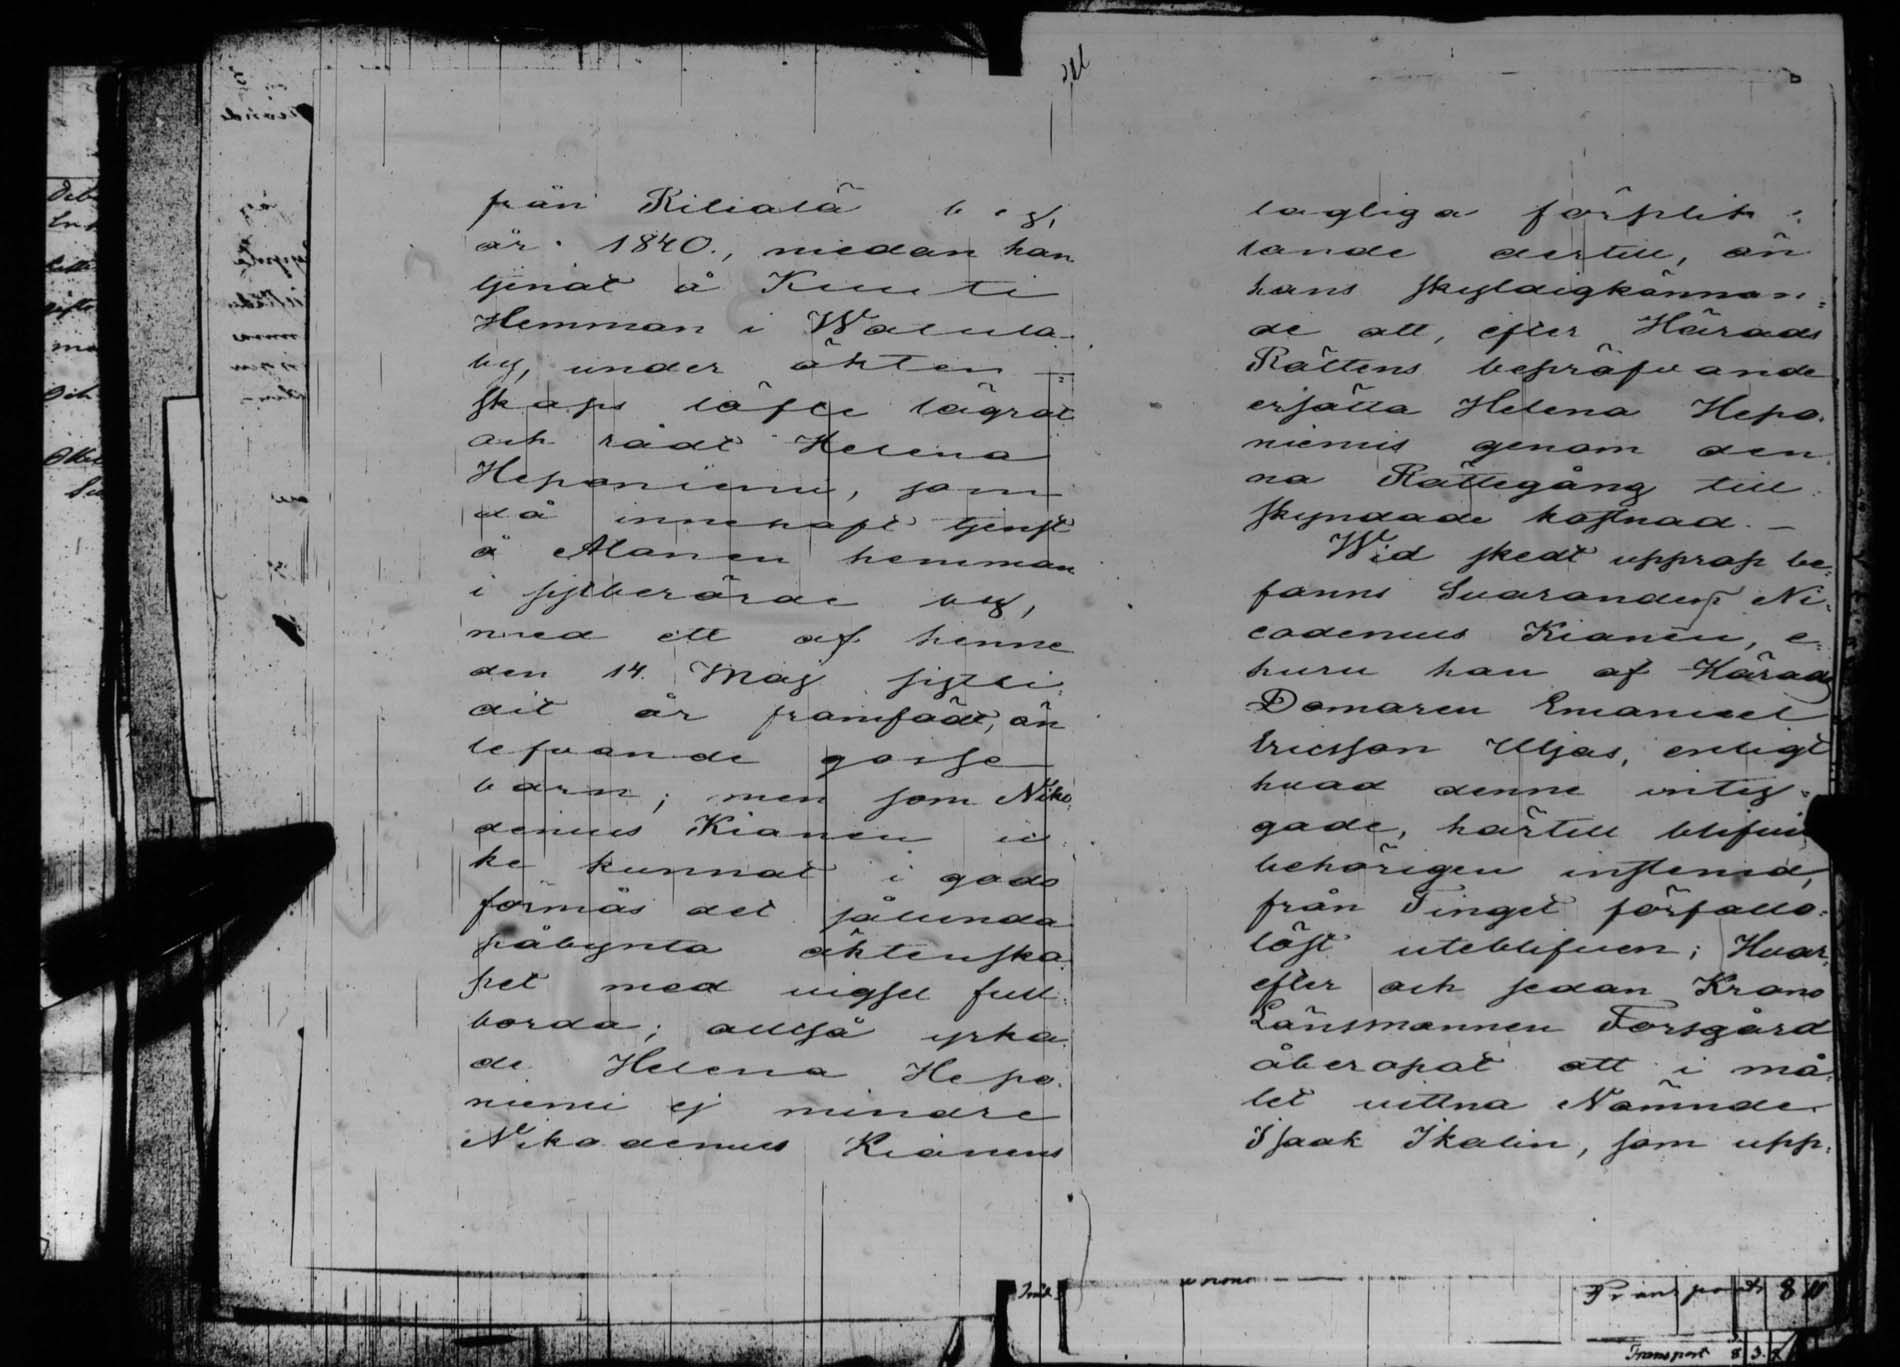 från Kilialä by,
år 1840., medan han
tjenat å Kuuti
Hemman i Walula
by, under ächten=
skaps löfte lägrat
och rådt Helena
Heponiemi, som
då innehaft tjenst
å Alanen hemman
i sistberörde by,
med ett af henne
den 14. Maj sistli=
dit år framfödt, än
lefvande gosse
barn; men som Niko=
demus Kianen ic=
ke kunnat i godo
förmås det sålunda
påbynta äktenska=
pet med vigsel full=
borda; alltså yrka=
de Helena Hepo=
niemi ej mindre
Nikodemus Kianens
lagliga förplik=
tande dertill, än
hans skyldigkännan=
de att, efter Härads
Rättens bepröfvande
ersätta Helena Hepo=
niemis genom den=
na Rättegång till=
skyndade kostnad. –
Wid skedt upprop be=
fanns Svaranden Ni=
codemus Kianen, e=
huru han af Härads
Domaren Emanuel
Ericsson Uljas, enligt
hvad denne intyg=
gade, härtill blifvit
behörigen instemd,
från Tinget förfallo=
löst uteblifven; Hvar=
efter och sedan Krono
Länsmannen Forsgård
åberopat att i må=
let vittna Nämnde.
Isaak Ikalin, som upp=
Transport 8
Transport 8 3